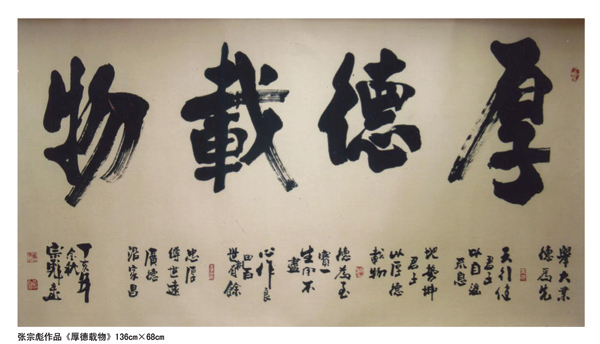 厚德載物
舉大業
德為先
天行健
君子
以自強
不息
地勢坤
君子
以厚德
載物
德為至
寶一
生用不
盡
心作良
田百
世
餘
忠厚
傳世遠
德
家昌
丁亥年
秋
宗彪
张宗彪作品《厚德载物》136cm×68cm